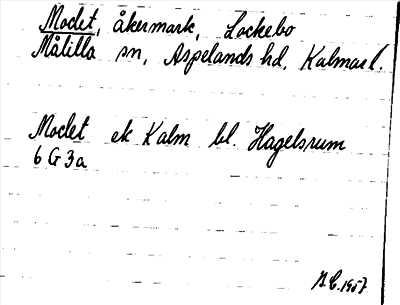 Moclet, åkermark, Lockebo
Målilla sn, Aspelands hd, Kalmar l.
Moclet ek Kalm bl. Hagelsrum
6 G 3a
1957